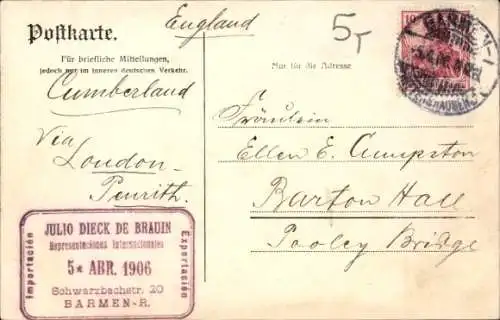 England
5T
Postkarte.
Für briefliche Mitteilungen,
jedoch nur im inneren deutschen Verkehr.
Nur für die Adresse
Cumberland
Via
London-
Penrith.
Fräulein
Ellen E. Cumpston
Barton Hall
Pooley Bridge
JULIO DIECK DE BRAUIN
Representaciones Internacionales
5* ABR. 1906
Schwarzbachstr. 20
BARMEN-R.
Importación
Exportación
10
BARMEN-